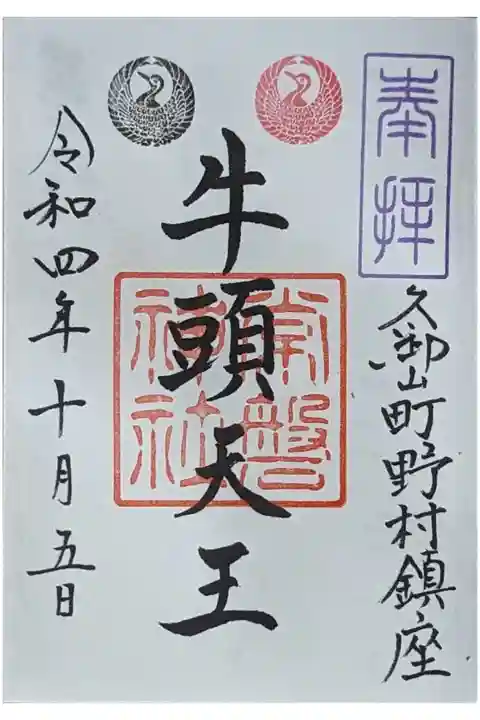 奉拝
久御山町野村鎮座
牛頭天王
常磐神社
令和四年十月五日